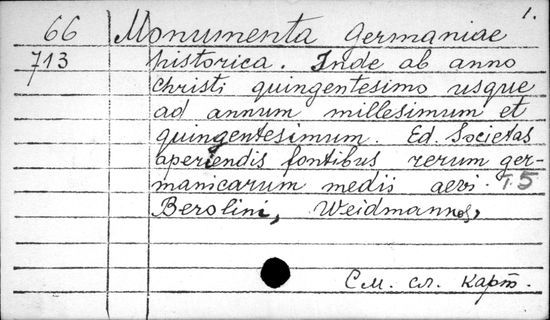 1.
66 Monumenta Germaniae
713 historica. Inde ab anno
Christi quingentesimo usque
ad annum millesimum et
quingentesimum. Ed. Societas
aperiendis fontibus rerum ger-
manicarum medii aevi. T.5
Berolini, Weidmannos,
См. сл. карт.